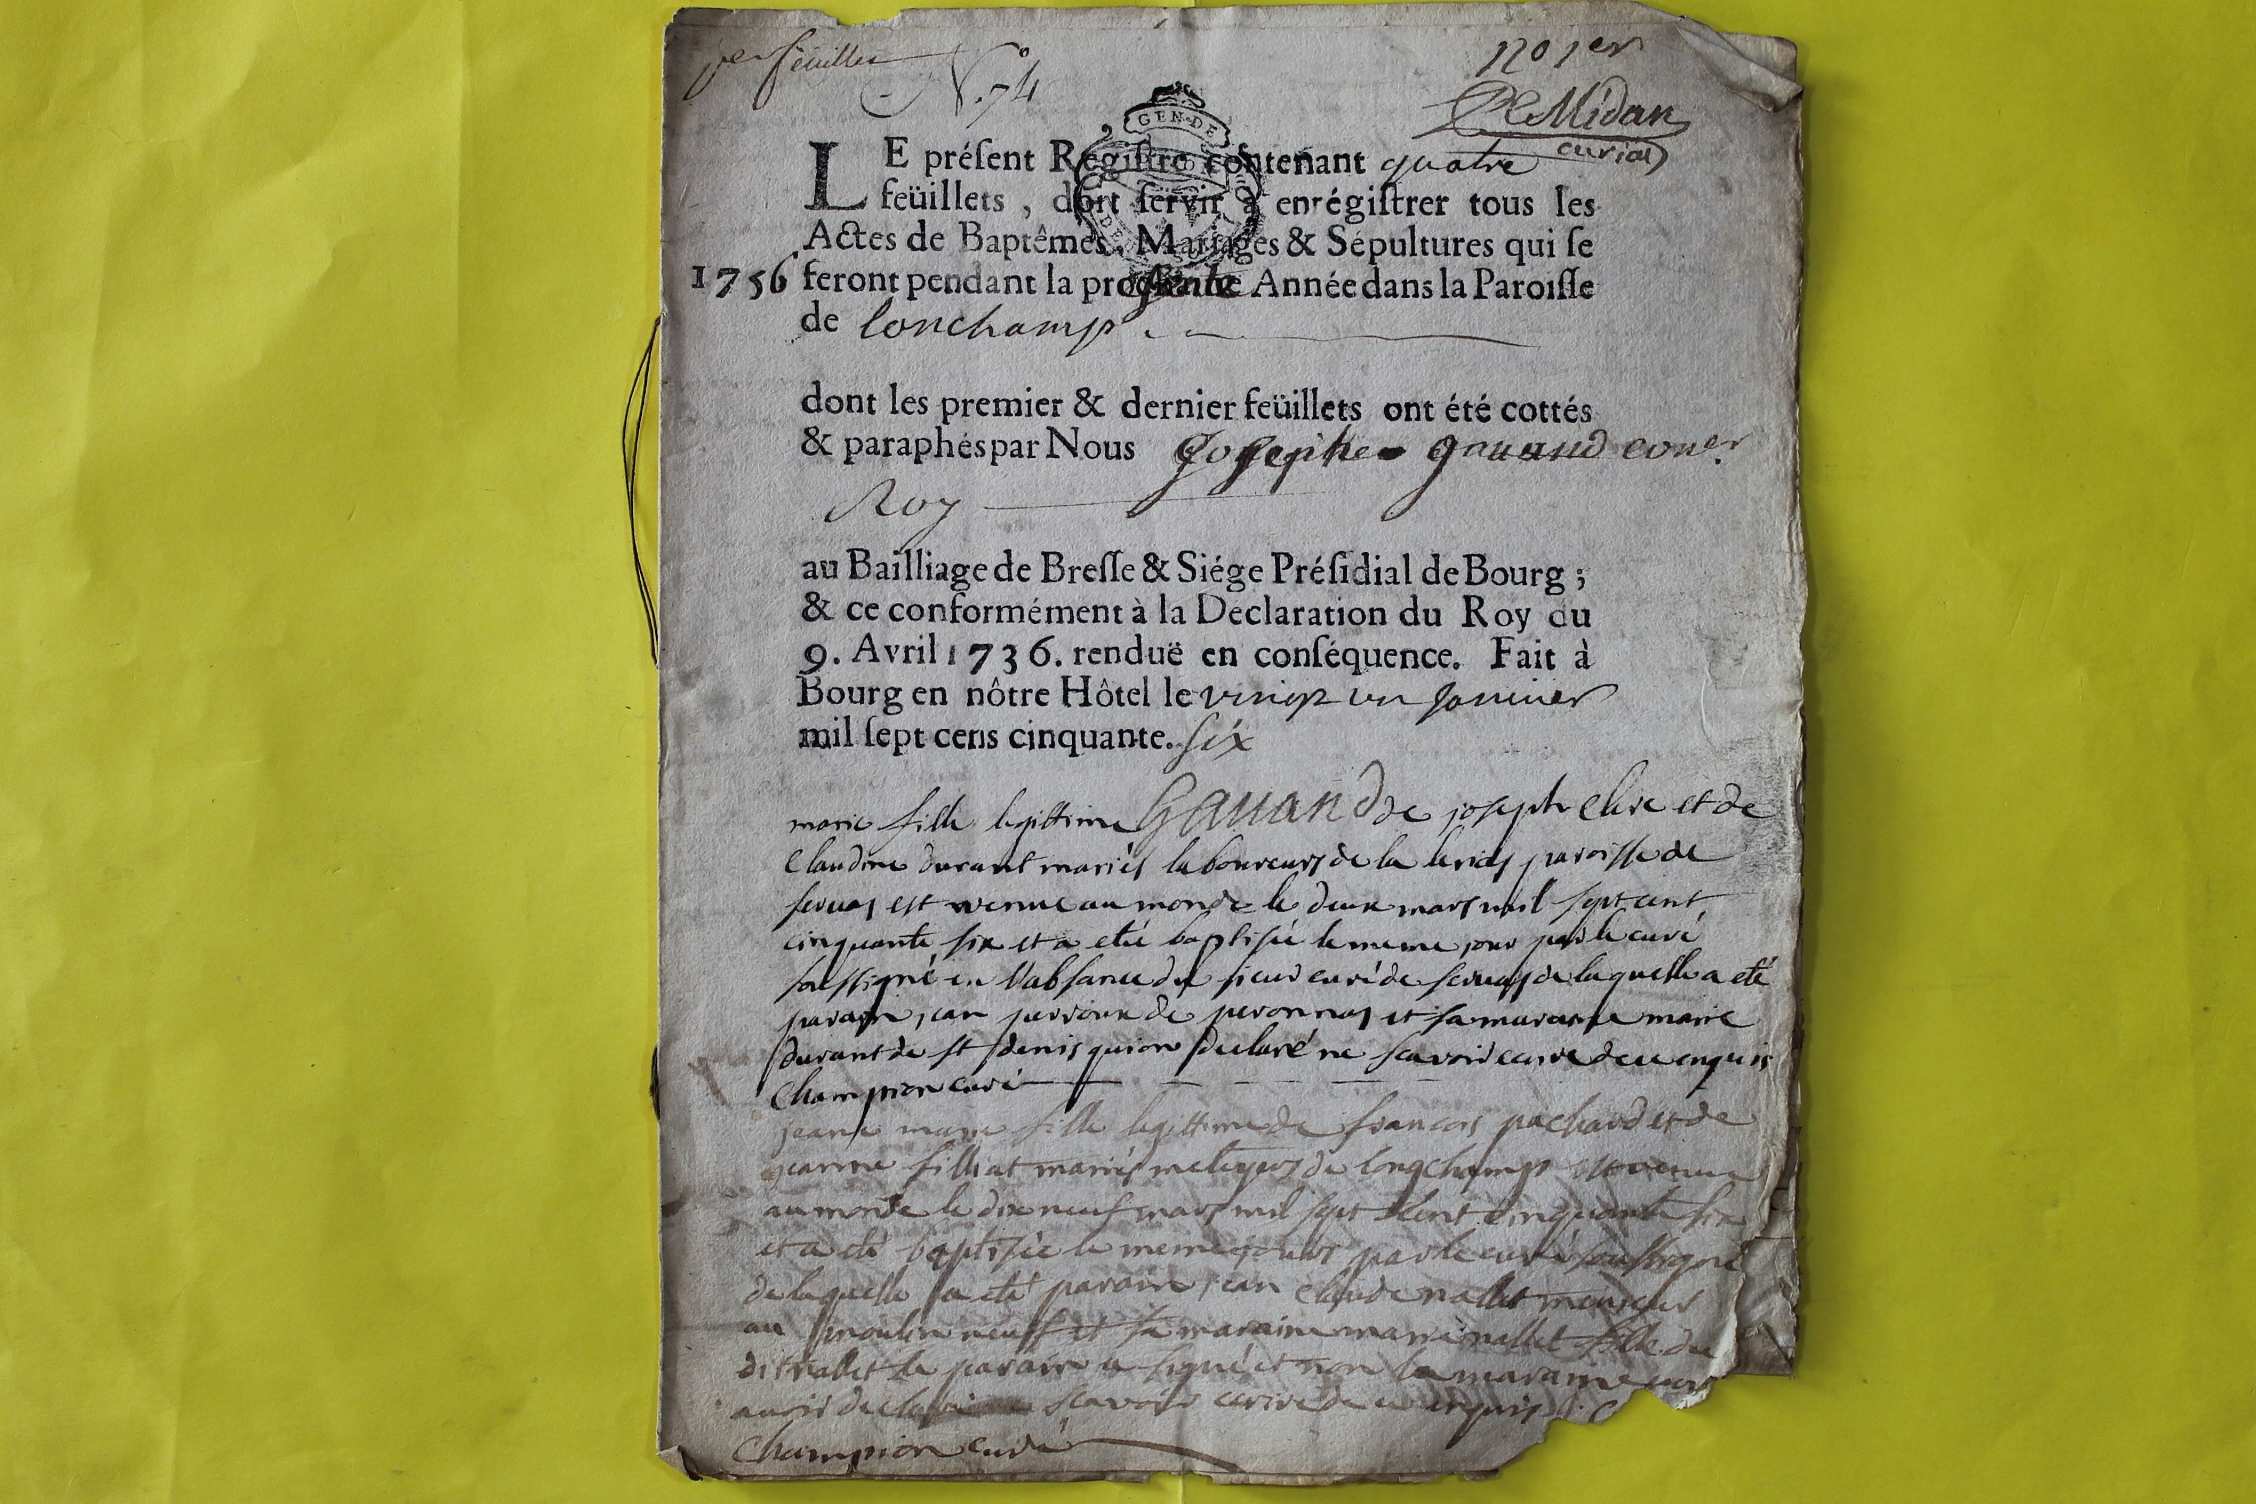 1er feüillet
N.° 74
no 1er
Midan
curial
GEN. DE
LE préſent Regiſtre contenant quatre
feüillets , doit ſervir à enrégiſtrer tous les
Actes de Baptêmes, Mariages & Sépultures qui ſe
1756 feront pendant la Année dans la Paroiſſe
de lonchamp
dont les premier & dernier feüillets ont été cottés
& paraphés par Nous Josephe gauand coner
Roy
au Bailliage de Breſſe & Siége Préſidial de Bourg ;
& ce conformément à la Declaration du Roy du
9. Avril 1736. renduë en conſéquence. Fait à
Bourg en nôtre Hôtel le vingt un janvier
mil ſept cens cinquante. six
Gauand
marie fille legittime de joseph clere et de
Claudine durant mariés laboureurs de la paroisse de
seruas est venue au monde le deux mars mil sept cent
cinquante six et a eté baptisée le meme jour par le curé
soussigné en l'absance du sieur curé de seruas de laquelle a eté
parain jean perroux de peronnas et sa maraine marie
durant de st denis qui on declaré ne scavoir ecrire de ce enquis
Champion curé
jeane marie fille legittime de francois pachard et de
jeanne filliat mariés de longchamp est venue
au monde le dix neuf mars mil sept cent cinquante six
et a eté baptisée le meme jour par le curé soussigné
de laquelle a eté parain jean claude nallet meunier
au moulin neuf et sa maraine marie nallet fille du
dit nallet le parain a signé et non la maraine pour
avoir declaré scavoir ecrire de ce enquis
Champion curé